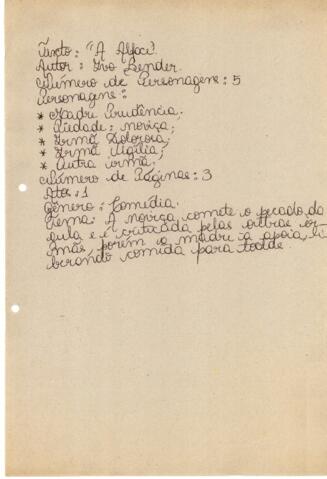 Texto: "A Alface".
Autor: Ivo Bender.
Número de Personagens: 5
Personagens:
* Madre Prudência;
* Piedade: noviça;
* Irmã Dolorosa;
* Irmã Vigília;
* Outra irmã.
Número de Páginas: 3
Atos: 1
Gênero: Comédia.
Tema: A noviça comete o pecado da
gula e é criticada pelas outras ir-
mãs, porém a madre a apoia, li-
berando comida para todas.